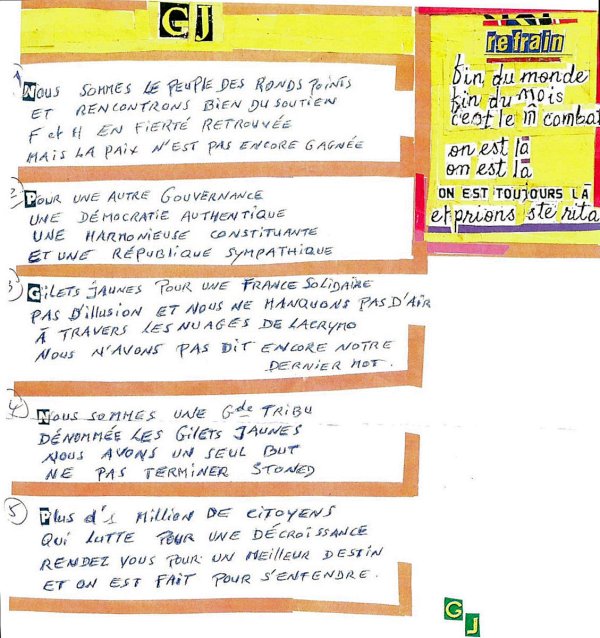 GJ
1 NOUS SOMMES LE PEUPLE DES RONDS POINTS
ET RENCONTRONS BIEN DU SOUTIEN
F et H EN FIERTÉ RETROUVÉE
MAIS LA PAIX N'EST PAS ENCORE GAGNÉE
2 POUR UNE AUTRE GOUVERNANCE
UNE DÉMOCRATIE AUTHENTIQUE
UNE HARMONIEUSE CONSTITUANTE
ET UNE RÉPUBLIQUE SYMPATHIQUE
3 GILETS JAUNES POUR UNE FRANCE SOLIDAIRE
PAS D'ILLUSION ET NOUS NE MANQUONS PAS D'AIR
À TRAVERS LES NUAGES DE LACRYMO
NOUS N'AVONS PAS DIT ENCORE NOTRE
DERNIER MOT.
4 NOUS SOMMES UNE Gde TRIBU
DÉNOMMÉE LES GILETS JAUNES
NOUS AVONS UN SEUL BUT
NE PAS TERMINER STONED
5 Plus d'1 Million DE CITOYENS
QUI LUTTE POUR UNE DÉCROISSANCE
RENDEZ VOUS POUR UN MEILLEUR DESTIN
ET ON EST FAIT POUR S'ENTENDRE.
refrain
fin du monde
fin du mois
c'est le m̂ combat
on est là
on est là
ON EST TOUJOURS LÀ
et prions ste rita
GJ